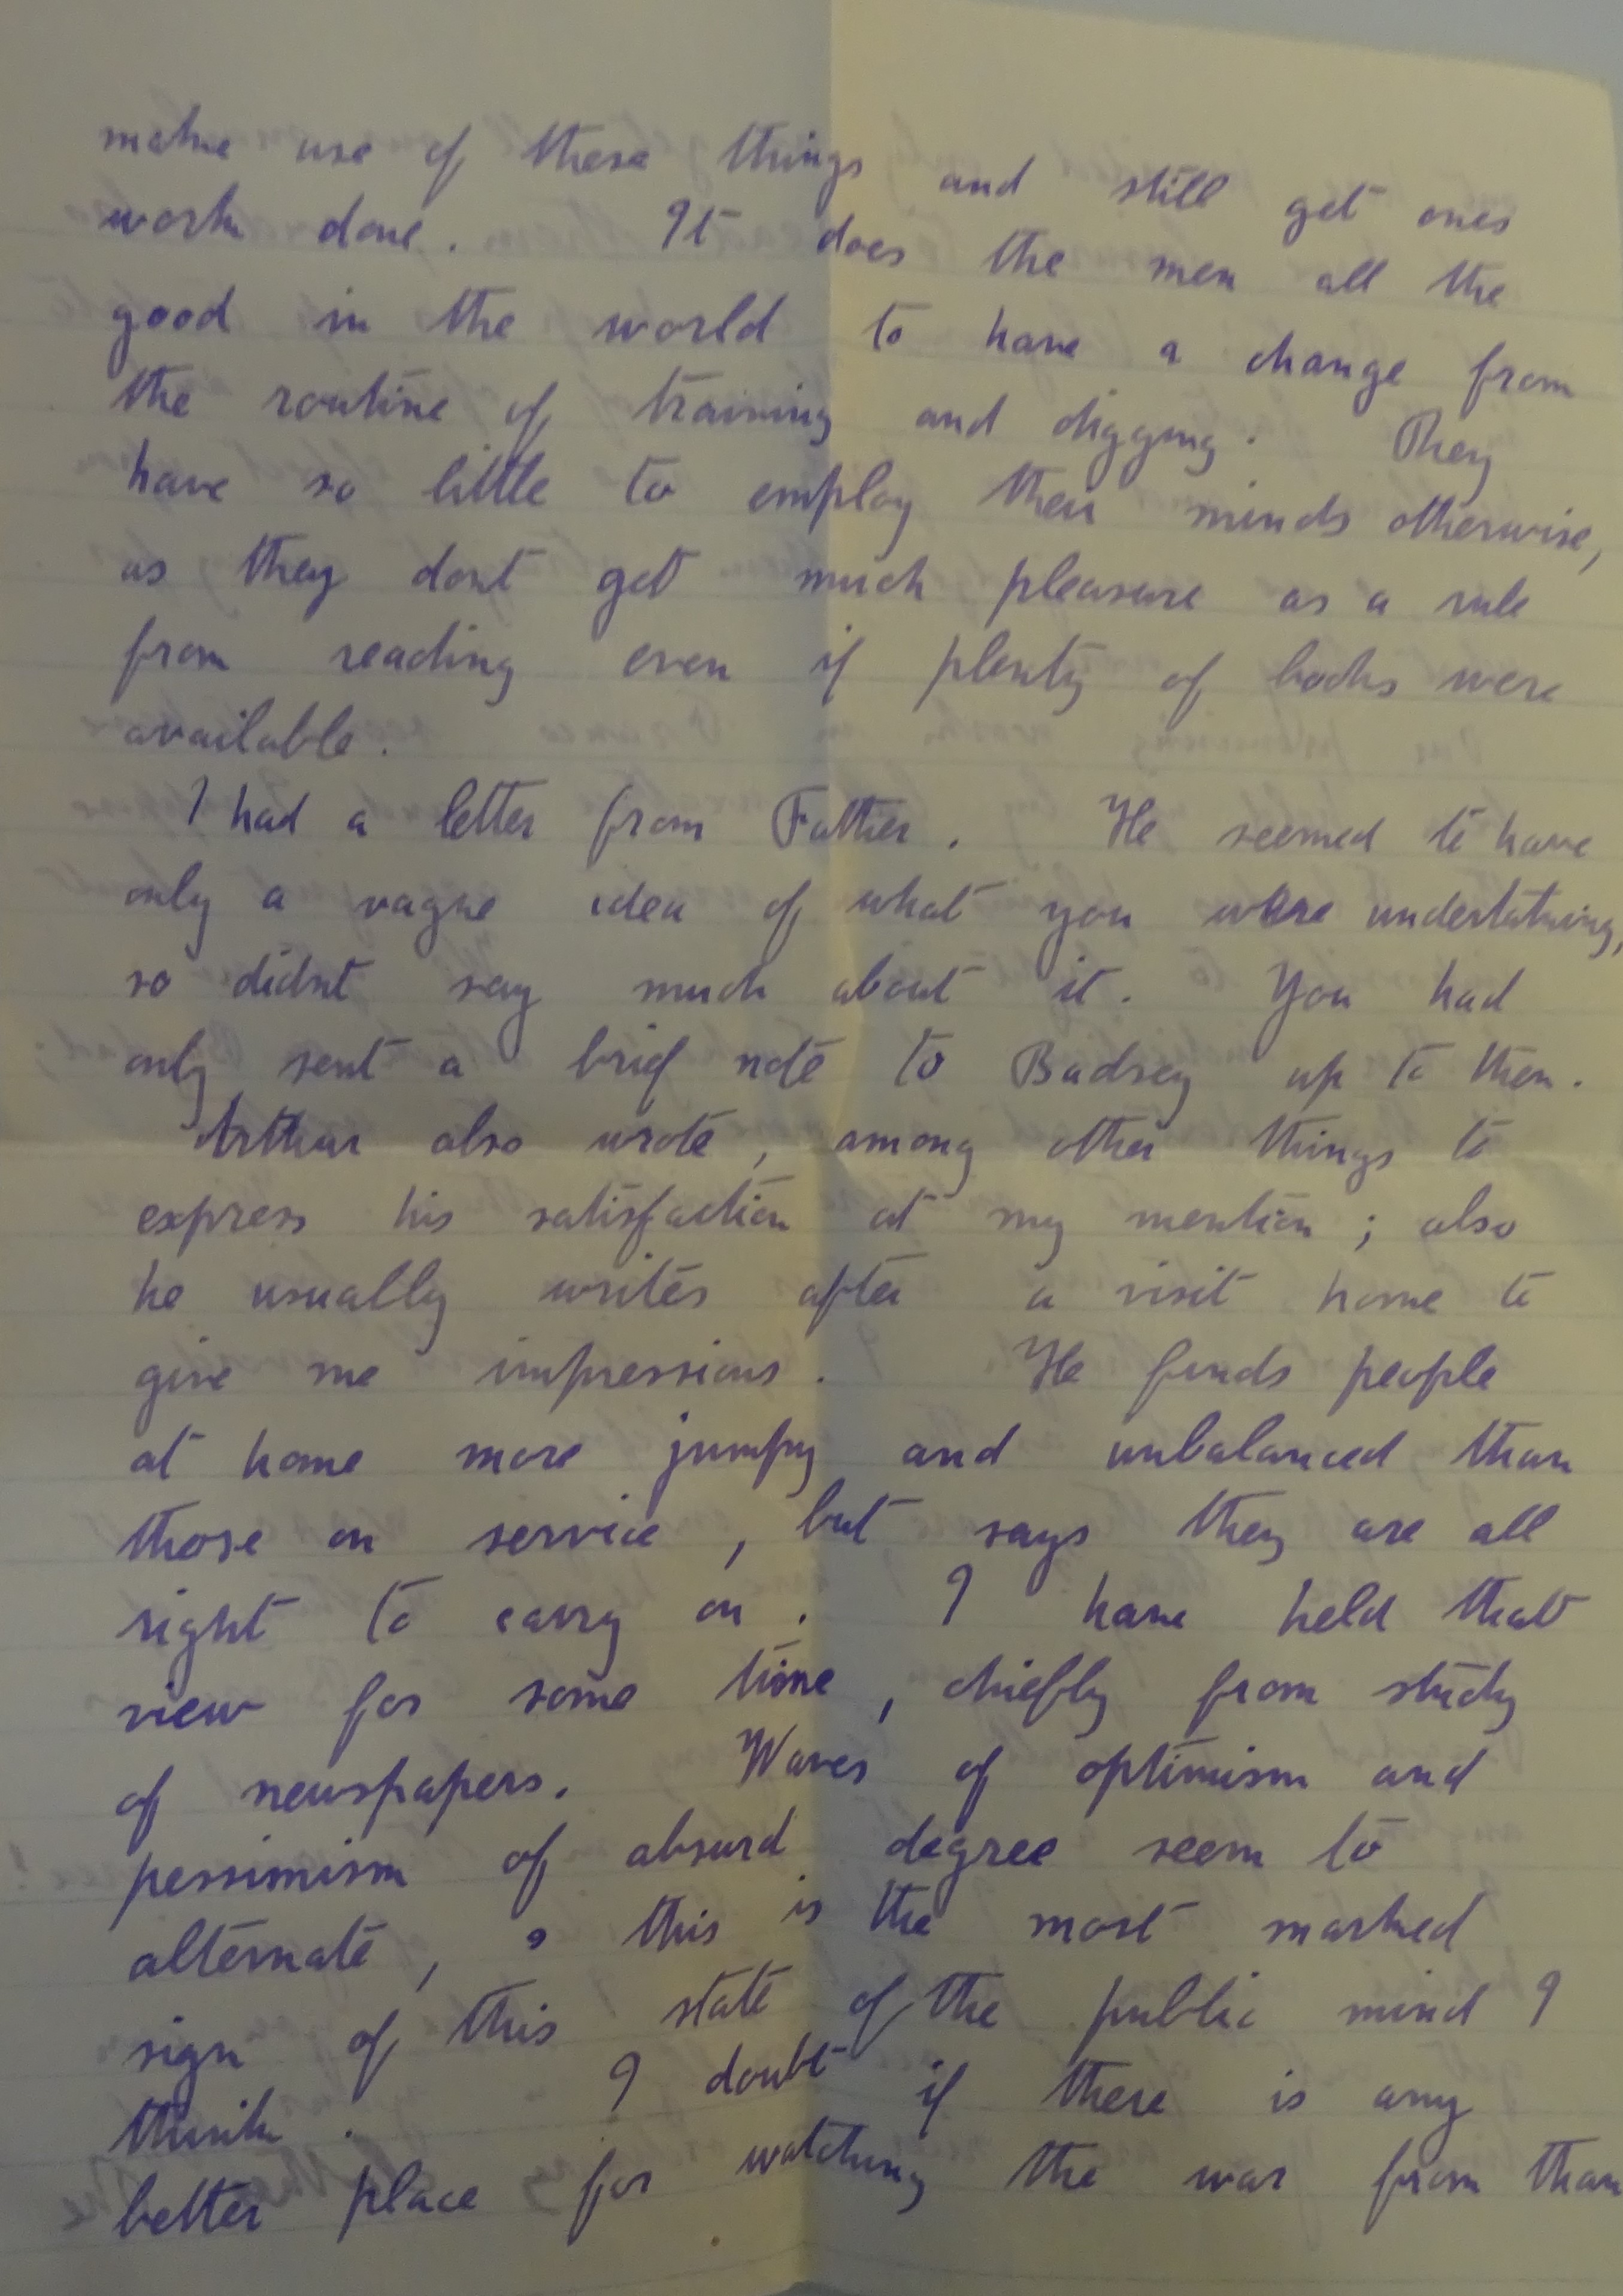 make use of these things and still get ones
work done. It does the men all the
good in the world to have a change from
the routine of training and digging. They
have so little to employ their minds otherwise,
as they dont get much pleasure as a rule
from reading even if plenty of books were
available.
I had a letter from Father. He seemed to have
only a vague idea of what you were undertaking,
so didnt say much about it. You had
only sent a brief note to Badsey up to then.
Arthur also wrote, among other things to
express his satisfaction at my mention; also
he usually writes after a visit home to
give me impressions. He finds people
at home more jumpy and unbalanced than
those on service, but says they are all
right to carry on. I have held that
view for some time, chiefly from study
of newspapers. Waves of optimism and
pessimism of absurd degree seem to
alternate, & this is the most marked
sign of this state of the public mind I
think. I doubt if there is any
better place for watching the war from than